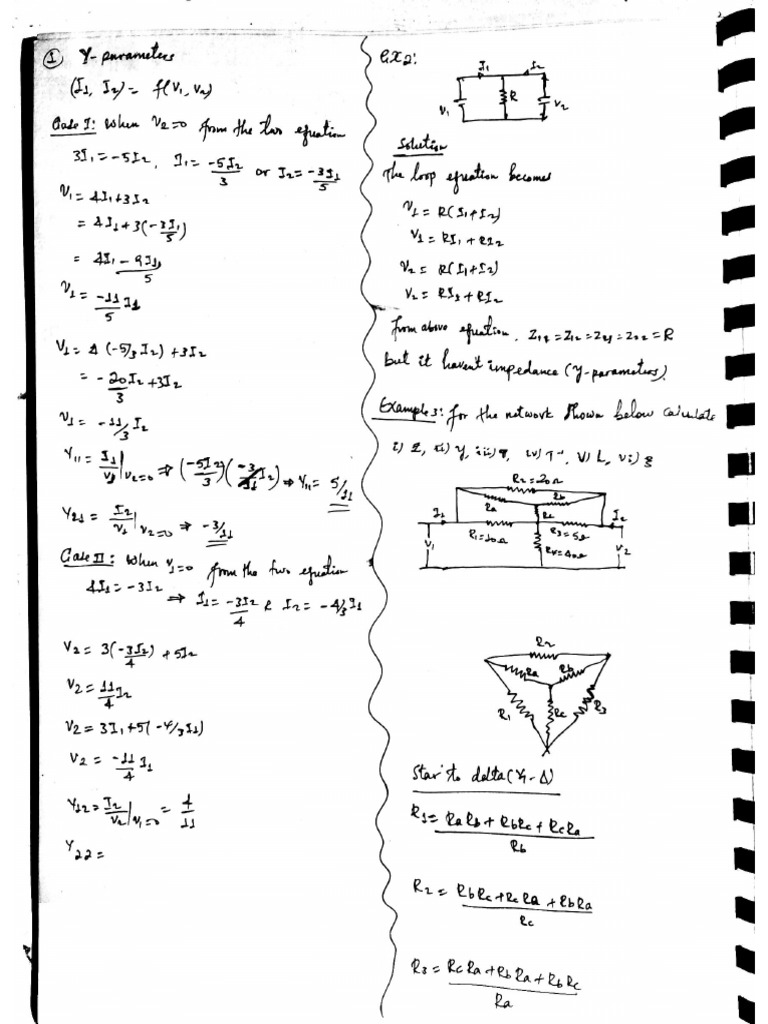 ① Y-parameters
(I1, I2) = f(V1, V2)
Case I: when V2=0 from the two equation
3I1 = -5I2, I1 = -5I2/3 or I2 = -3I1/5
V1 = 4I1+3I2
= 4I1+3(-3I1/5)
= 4I1 - 9I1/5
V1 = -11/5 I1
V1 = 4(-5/3 I2) +3I2
= -20/3 I2 +3I2
V1 = -11/3 I2
Y11 = I1/V1 | V2=0 ⇒ (-5I2/3)(-3/11 I2) ⇒ Y11 = 5/11
Y21 = I2/V1 | V2=0 ⇒ -3/11
Case II: when V1=0 from the two equation
4I1 = -3I2
⇒ I1 = -3I2/4 & I2 = -4/3 I1
V2 = 3(-3I2/4) + 5I2
V2 = 11/4 I2
V2 = 3I1+5(-4/3 I1)
V2 = -11/4 I1
Y12 = I2/V2 | V1=0 = 4/11
Y22 =
EX2:
I1 I2
V1 R V2
Solution
The loop equation becomes
V1 = R(I1+I2)
V1 = RI1 + RI2
V2 = R(I1+I2)
V2 = RI1 + RI2
from above equation, Z11 = Z12 = Z21 = Z22 = R
but it haven't impedance (Y-parameters).
Example 3: for the network shown below calculate
i) Z, ii) Y, iii) T, iv) T⁻¹, v) L, vi) g
R2=20Ω
Ra Rb
I1 Rc I2
R1=10Ω R3=5Ω
V1 R4=40Ω V2
R2
Ra Rb
R1 Rc R3
Star to delta (Y-Δ)
R1 = RaRb + RbRc + RcRa
Rb
R2 = RbRc + RcRa + RbRa
Rc
R3 = RcRa + RbRa + RbRc
Ra